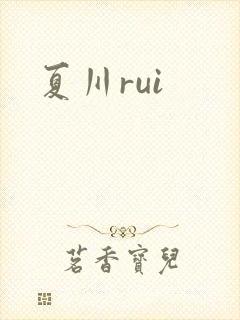 夏川rui
茗香寶兒